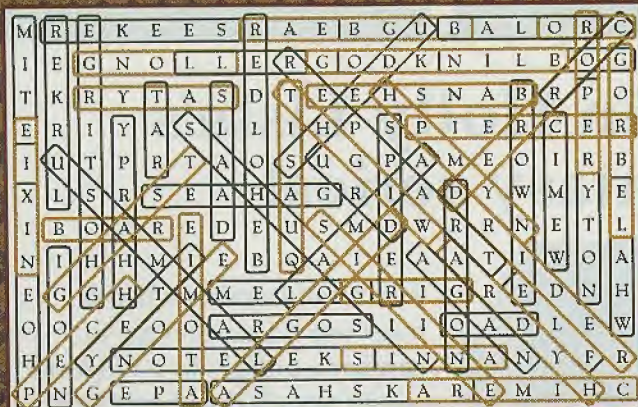 M R E K E E S R A E B G U B A L O R C
I E G N O L L E R G O D K N I L B O G
T K R Y T A S D T E E H S N A B R P O
E R I Y A S L L I H P S P I E R C E R
I U T P R T A O S U G P A M E O I R B
X L S R S E A H A G R I A D Y W M Y E
I B O A R E D E U S M D W R R N E T L
N I H H M I E B Q A I E A A T I W O A
E G G H T M M E L O G R I G R E D N H
O O C E O O A R G O S I I O A D L E W
H E Y N O T E L E K S I N N A N Y F R
P N G E P A A S A H S K A R E M I H C